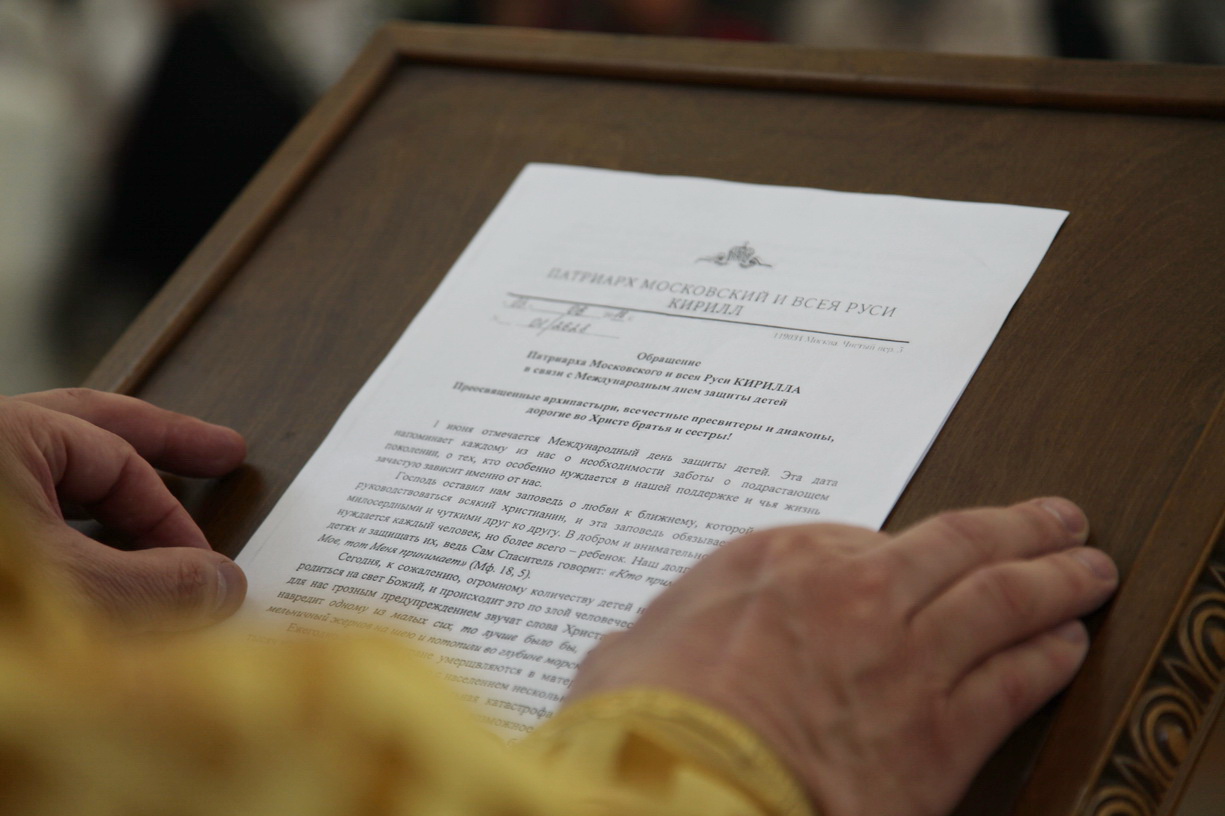 ПАТРИАРХ МОСКОВСКИЙ И ВСЕЯ РУСИ
КИРИЛЛ
119034 Москва, Чистый пер. 5
Обращение
Патриарха Московского и всея Руси КИРИЛЛА
в связи с Международным днем защиты детей
Преосвященные архипастыри, всечестные пресвитеры и диаконы,
дорогие во Христе братья и сестры!
1 июня отмечается Международный день защиты детей. Эта дата
напоминает каждому из нас о необходимости заботы о подрастающем
поколении, о тех, кто особенно нуждается в нашей поддержке и чья жизнь
зачастую зависит именно от нас.
Господь оставил нам заповедь о любви к ближнему, которой
руководствоваться всякий христианин, и эта заповедь обязывае
милосердными и чуткими друг ко другу. В добром и внимательно
нуждается каждый человек, но более всего – ребенок. Наш долг
детях и защищать их, ведь Сам Спаситель говорит: «Кто при
Мое, тот Меня принимает» (Мф. 18, 5).
Сегодня, к сожалению, огромному количеству детей н
родиться на свет Божий, и происходит это по злой человечес
для нас грозным предупреждением звучат слова Христ
навредит одному из малых сих, то лучше было бы,
мельничный жернов на шею и потопили во глубине морск
умерщвляются в матер
населением несколь
катастрофа